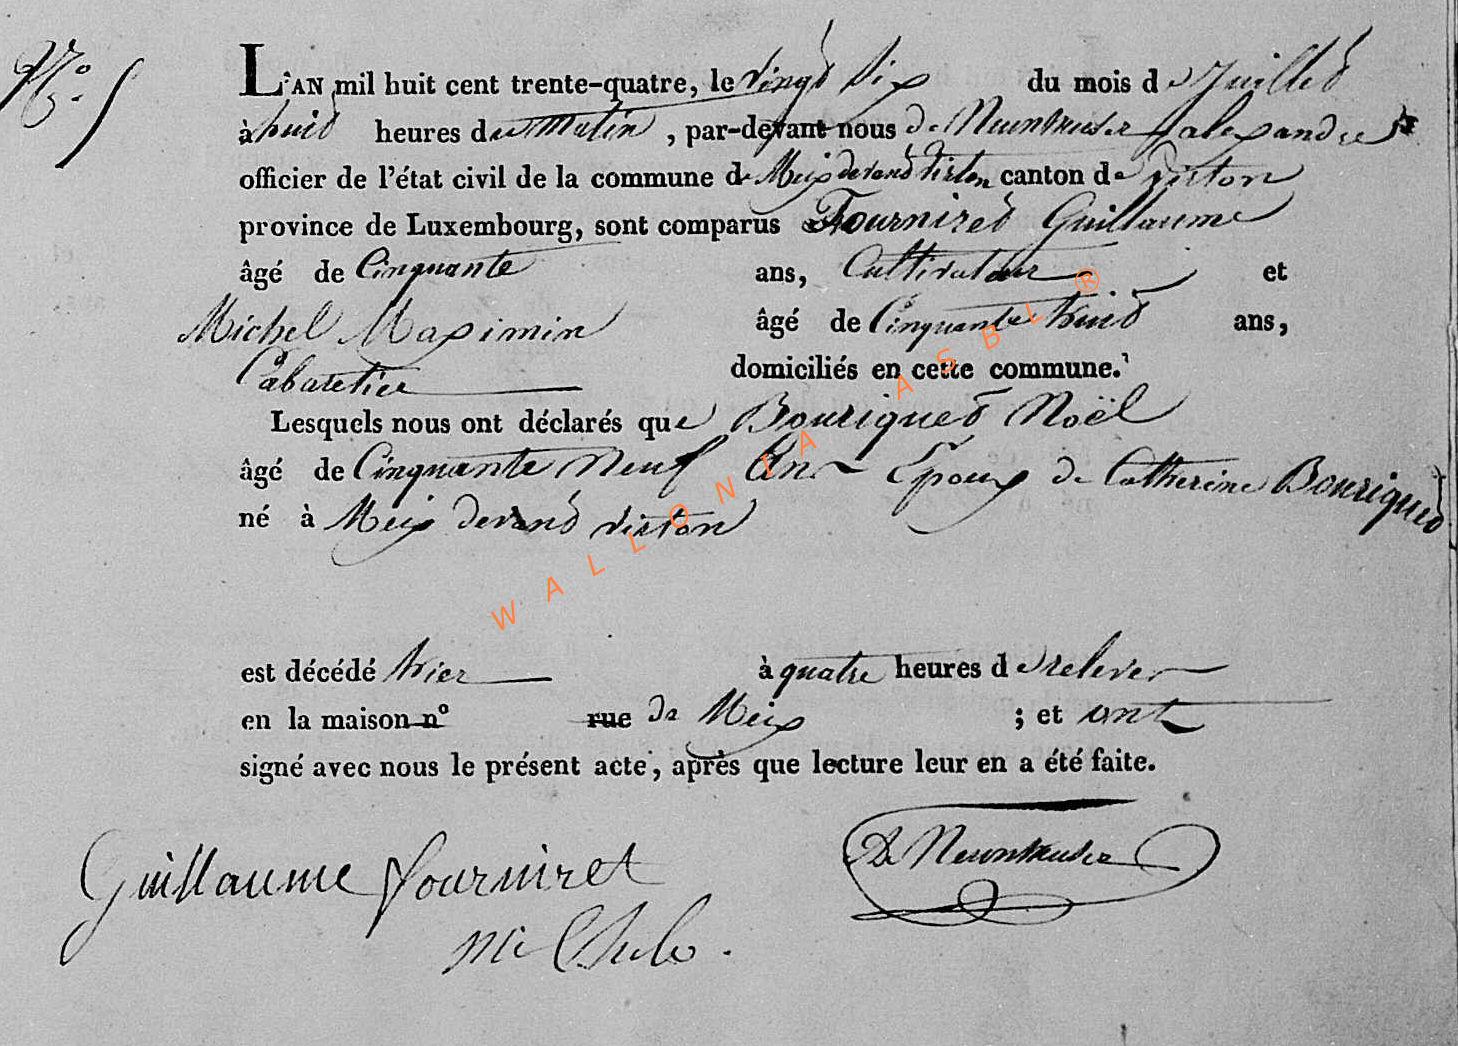 N° 5
L'AN mil huit cent trente-quatre, le vingt six du mois de Juillet
à huit heures du Matin, par-devant nous de Neunheuser alexandre
officier de l'état civil de la commune de Meix devant virton canton de virton
province de Luxembourg, sont comparus Fourniret Guillaume
âgé de Cinquante ans, Cultivateur et
Michel Maximin âgé de Cinquante huit ans,
Cabaretier domiciliés en cette commune.
Lesquels nous ont déclarés que Bouriquet Noël
âgé de Cinquante Neuf Ans Epoux de Catherine Bouriquet
né à Meix devant virton
WALLONIA ASBL ®
est décédé hier à quatre heures de relever
en la maison n° rue de Meix ; et ont
signé avec nous le présent acte, après que lecture leur en a été faite.
Guillaume fourniret
De Neunheuser